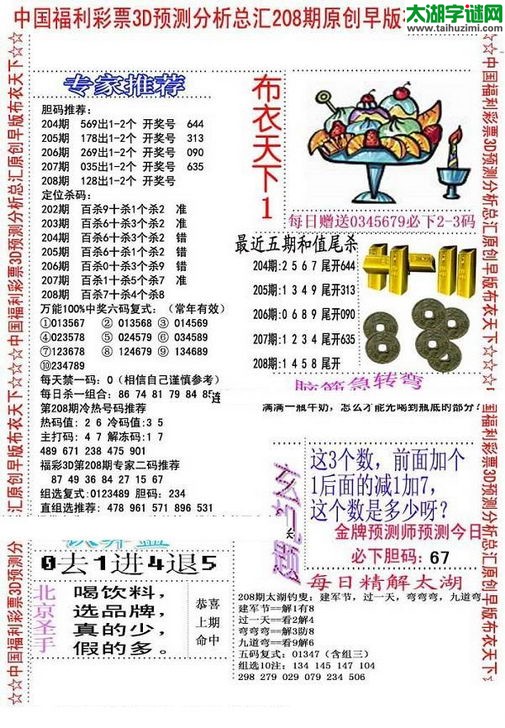 太湖字谜网
www.taihuzimi.com
中国福利彩票3D预测分析总汇208期原创早版
专家推荐
胆码推荐:
204期 569出1-2个 开奖号 644
205期 178出1-2个 开奖号 313
206期 269出1-2个 开奖号 090
207期 035出1-2个 开奖号 635
208期 128出1-2个 开奖号
定位杀码:
202期 百杀9十杀1个杀2 准
203期 百杀6十杀1个杀2 错
204期 百杀3十杀6个杀2 错
205期 百杀3十杀6个杀2 错
206期 百杀0十杀9个杀1 错
207期 百杀1十杀5个杀7 准
208期 百杀7十杀4个杀8
万能100%中奖六码复式: (常年有效)
①013567 ②013568 ③014569
④023578 ⑤024579 ⑥134679
⑦123678 ⑧124679 ⑨134689
⑩234789
每天禁一码: 0 (相信自己谨慎参考)
每日杀一组合: 86 74 81 79 84 85 连
第208期冷热号码推荐
热码值: 2 6 冷码值: 3 5
主打码: 4 7 解冻码: 1 7
489 671 238 475 901
福彩3D第208期专家二码推荐
87 49 36 84 27 15 67
组选复式: 0123489 胆码: 234
直组选推荐: 478 961 571 896 531
布衣天下1
每日赠送0345679必下2-3码
最近五期和值尾杀
204期: 2 5 6 7 尾开644
205期: 1 3 4 9 尾开313
206期: 0 6 8 9 尾开090
207期: 1 2 3 4 尾开635
208期: 1 4 5 8 尾开
脑筋急转弯
满满一瓶牛奶, 怎么才能先喝到瓶底的部分?
这3个数, 前面加个
1后面的减1加7,
这个数是多少呀?
金牌预测师预测今日
必下胆码: 67
0去1进4退5
北京圣手
喝饮料,
选品牌,
真的少,
假的多。
恭喜
上期
命中
每日精解太湖
208期太湖钓叟: 建军节, 过一天, 弯弯弯, 九道弯
建军节==解1有8
过一天==看2解4
弯弯弯==解3防8
九道弯==看9解6
五码复式: 01347 (含组三)
组选10注: 134 145 147 104
298 279 029 079 234 506
中国福利彩票3D预测分析总汇原创早版布衣天下